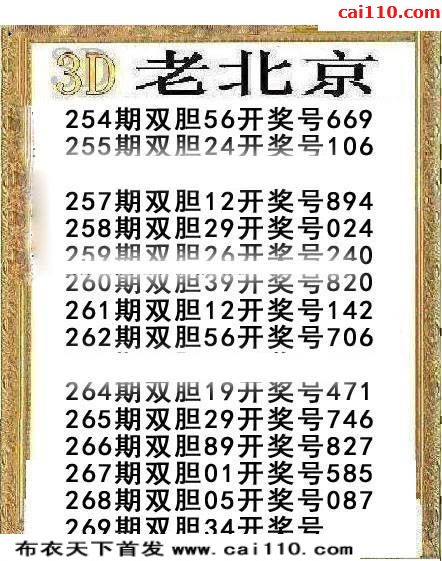 cai110.com
3D 老北京
254期双胆56开奖号669
255期双胆24开奖号106
257期双胆12开奖号894
258期双胆29开奖号024
259期双胆26开奖号240
260期双胆39开奖号820
261期双胆12开奖号142
262期双胆56开奖号706
264期双胆19开奖号471
265期双胆29开奖号746
266期双胆89开奖号827
267期双胆01开奖号585
268期双胆05开奖号087
269期双胆34开奖号
布衣天下首发 www.cai110.com